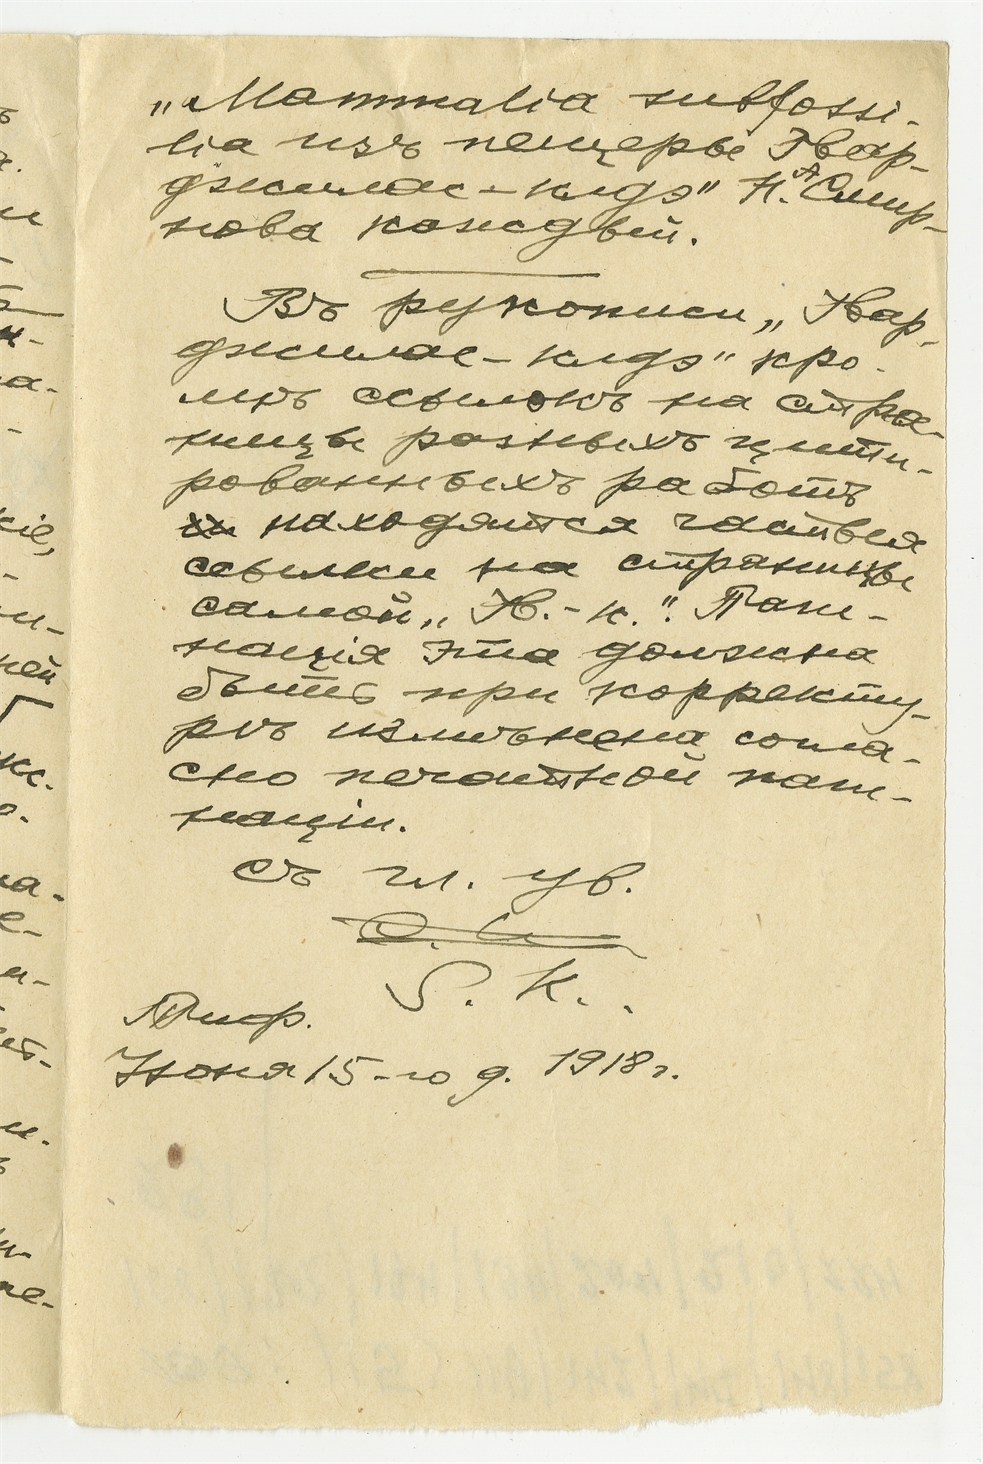 „Mammalia subfossi-
lia изъ пещеры Гвар-
джилас-клдэ" Н. А. Смир-
нова каждый.
Въ рукописи „Гвар-
джилас-клдэ" кро-
мѣ ссылокъ на стра-
ницы разныхъ цити-
рованныхъ работъ
находятся частыя
ссылки на страницы
самой „Г.-к.". Паги-
нація эта должна
быть при корректу-
рѣ измѣнена согла-
сно печатной паги-
націи.
Съ гл. ув.
S. K.
Тифр.
Іюня 15-го д. 1918 г.